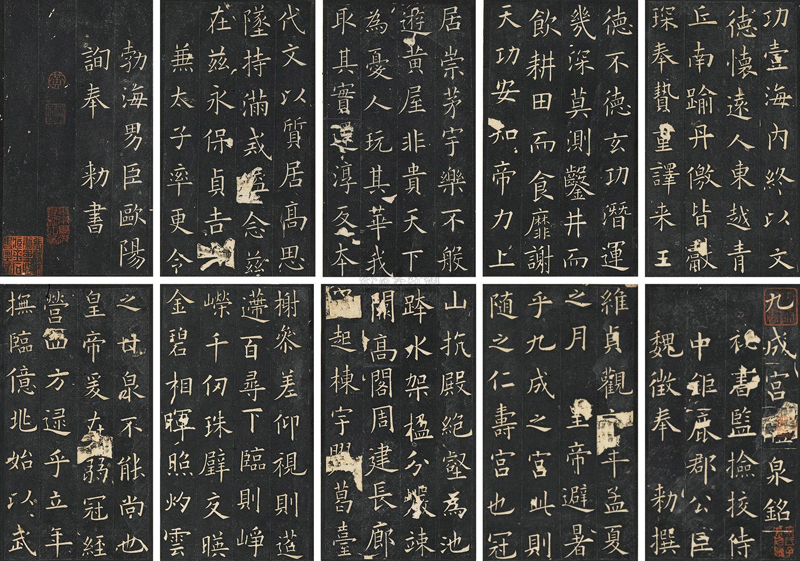 九成宮泉銘
秘書監檢校侍
中鉅鹿郡公臣
魏徵奉 勑撰
維貞觀年孟夏
之月 皇帝避暑
乎九成之宮此則
随之仁壽宮也冠
山抗殿絕壑為池
跨水架楹分巖竦
闕高閣周建長廊
起棟宇葛臺
榭參差仰視則迢
遰百尋下臨則崢
嶸千仞珠璧交暎
金碧相暉照灼雲
之甘泉不能尚也
皇帝爰在弱冠經
營四方逮乎立年
撫臨億兆始以武
功壹海內終以文
德懷遠人東越青
丘南踰丹儌皆獻
琛奉贄重譯來王
德不德玄功潛運
幾深莫測鑿井而
飲耕田而食靡謝
天功安知帝力上
居崇茅宇樂不般
遊黃屋非貴天下
為憂人玩其華我
取其實還淳反本
代文以質居高思
墜持滿戒溢念茲
在茲永保貞吉
兼太子率更令
勃海男臣歐陽
詢奉 勑書